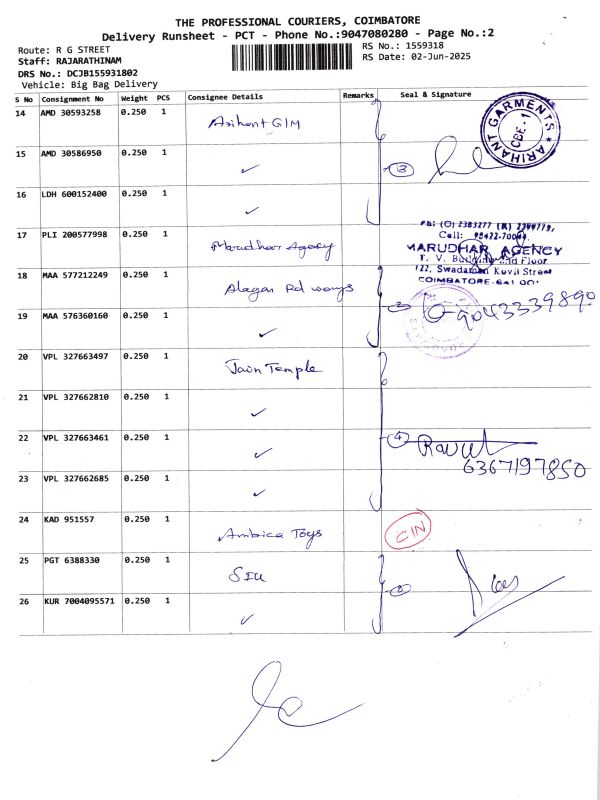 THE PROFESSIONAL COURIERS, COIMBATORE
Delivery Runsheet - PCT - Phone No.:9047080280 - Page No.:2
Route: R G STREET
RS No.: 1559318
Staff: RAJARATHINAM
RS Date: 02-Jun-2025
DRS No.: DCJB155931802
Vehicle: Big Bag Delivery
S No Consignment No Weight PCS Consignee Details Remarks Seal & Signature
14 AMD 30593258 0.250 1 Arihant G/M
ARIHANT GARMENTS ★ CBE-1 ★
15 AMD 30586950 0.250 1 ✓ 3
16 LDH 600152400 0.250 1 ✓
17 PLI 200577998 0.250 1 Marudhar Agency
Ph: (O) 2383277 (R)
Cell: 98422-70044
MARUDHAR AGENCY
T. V. Building Floor
122, Swadaman Kovil Street
COIMBATORE-641 001
18 MAA 577212249 0.250 1 Alagan Rd ways
19 MAA 576360160 0.250 1 ✓ 2 9043339890
20 VPL 327663497 0.250 1 Jain Temple
21 VPL 327662810 0.250 1 ✓
22 VPL 327663461 0.250 1 ✓ 4
6367197850
23 VPL 327662685 0.250 1 ✓
24 KAD 951557 0.250 1 Ambica Toys CIN
25 PGT 6388330 0.250 1 2
26 KUR 7004095571 0.250 1 ✓